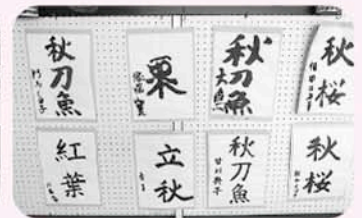 秋刀魚
栗
秋刀魚
秋桜
紅葉
立秋
秋刀魚
秋桜